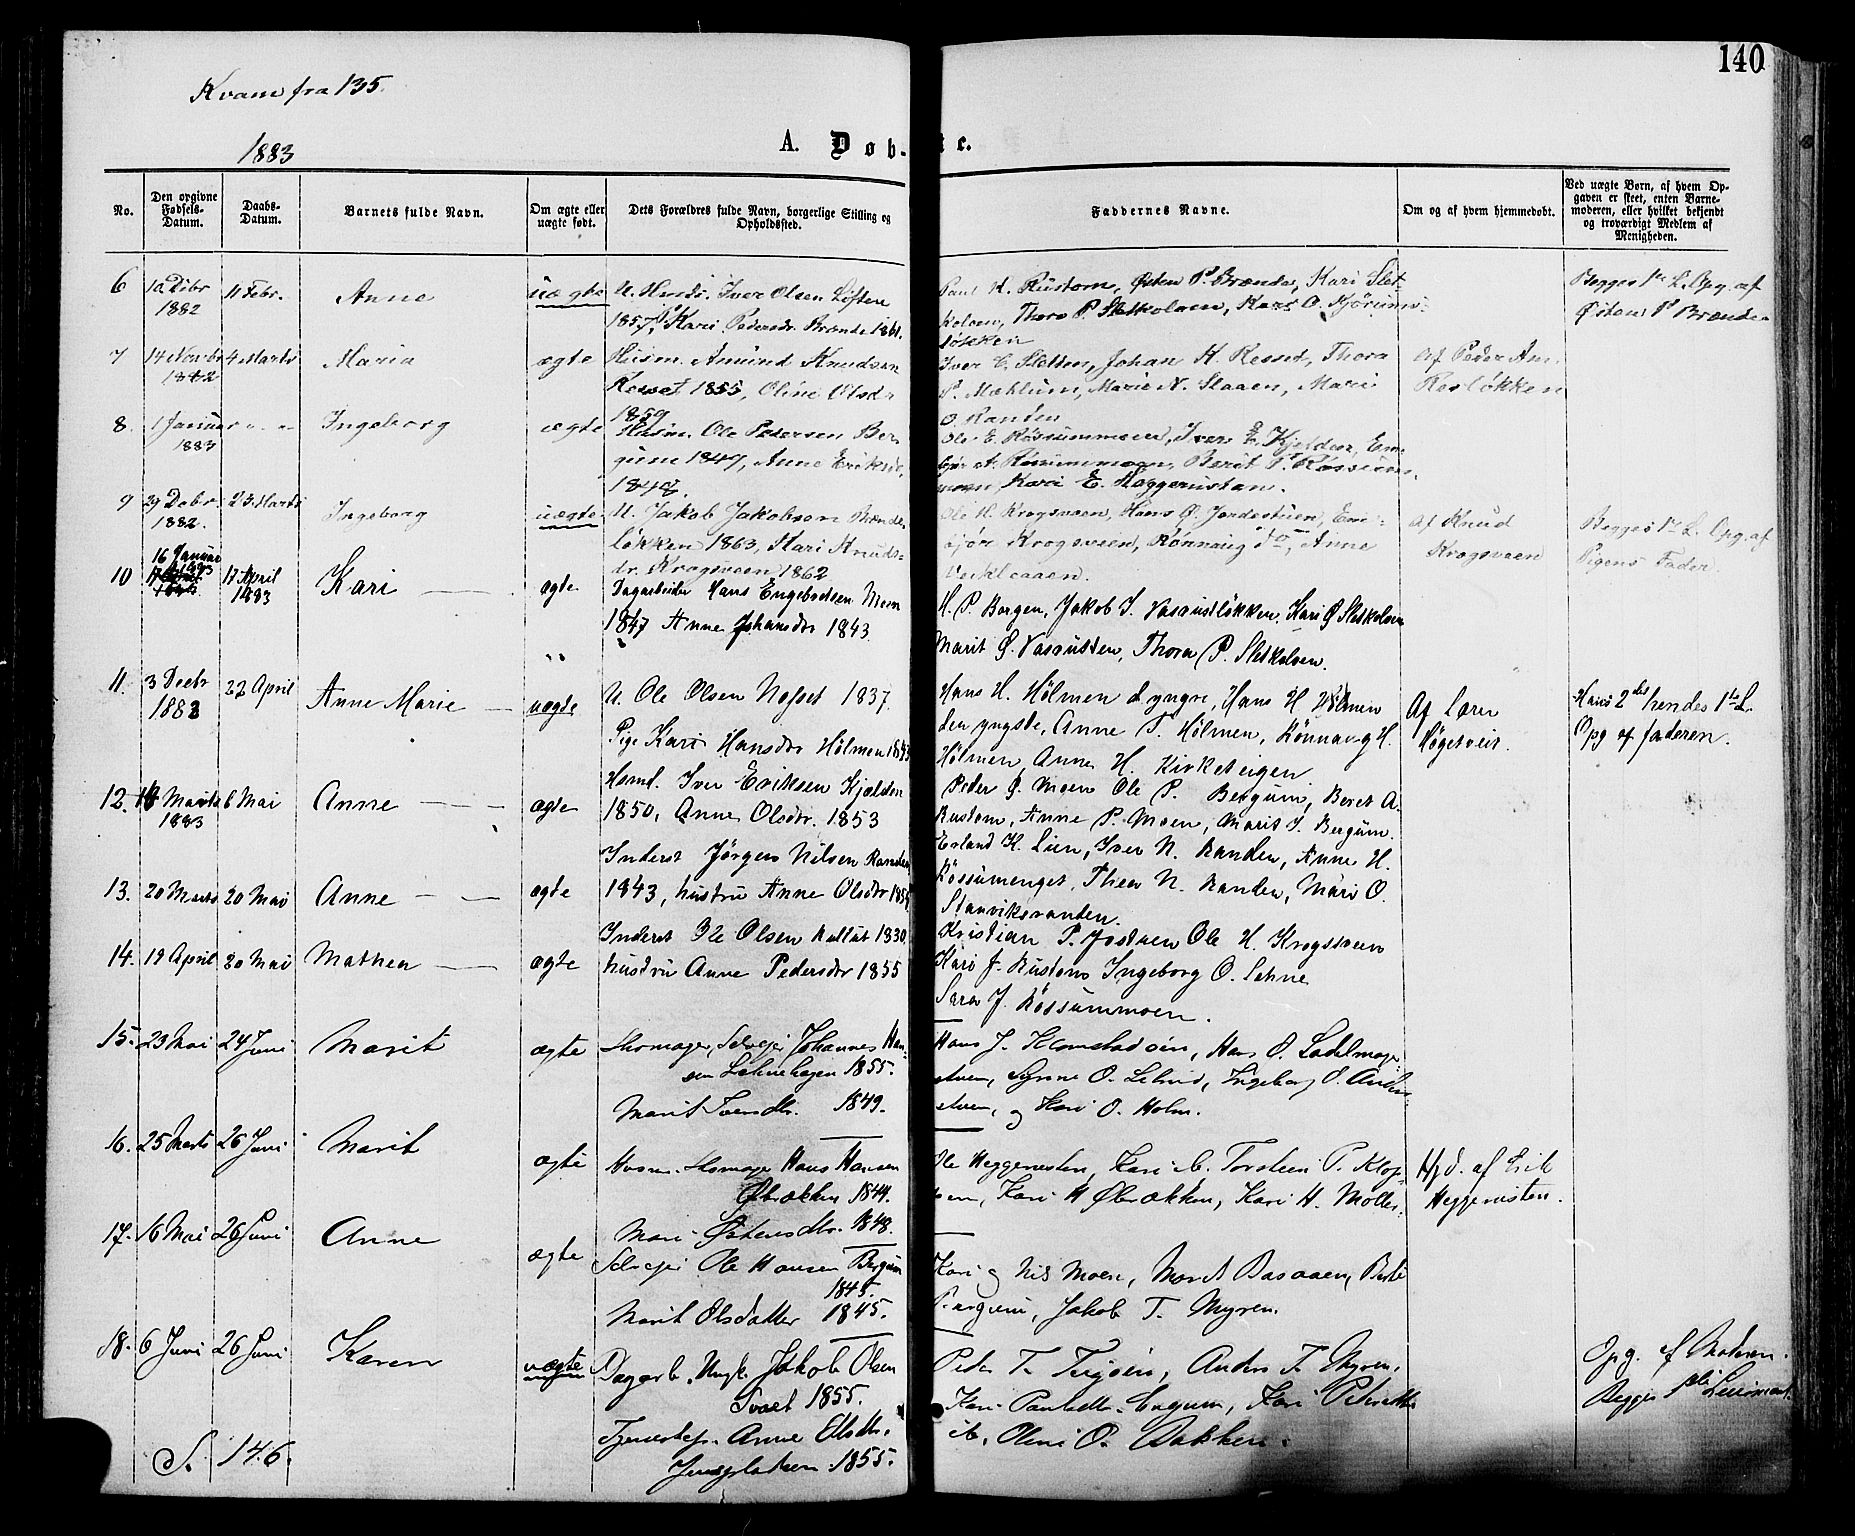 140
Kvam fra 135.
1883
A. Døbte.
No.
Den opgivne Fødsels-Datum.
Daabs-Datum.
Barnets fulde Navn.
Om ægte eller uægte født.
Dets Forældres fulde Navn, borgerlige Stilling og Opholdssted.
Faddernes Navne.
Om og af hvem hjemmedøbt.
Ved uægte Børn, af hvem Opgaven er skeet, enten Barnemoderen, eller hvilket bekjendt og troværdigt Medlem af Menigheden.
6 10 Dcbr 1882 11 Febr. Anne uægte
U. Iver Olsen Løften
1857, Kari Pedersdr. Brænde 1861.
Paul K. Rustom, Østen P. Brænde, Kari Slet-
kolven, Thora P. Sletkolven, Kari O. Kjørums-
løkken
Begges 1ste L. Opg. af
Østen P. Brænde
7 14 Novbr 1882 4 Marts Maria ægte
Husm. Amund Knudsen
Resset 1855, Oline Olsdr
1859
Iver E. Sletten, Johan K. Resset, Thora
P. Mæhlum, Marie N. Staaen, Mari
O. Randen
Af Peder Am.
Resløkken
8. 1 Januar 1883 Ingeborg ægte
Husm. Ole Petersen Ber-
gum 1849, Anne Eriksdr.
1848.
Ole E. Røssummoen, Iver E. Kjelden, Em-
bjør A. Røssummoen, Berit P. Røssum-
moen, Kari E. Heggerusten.
9 29 Dcbr. 1882. 23 Marts Ingeborg uægte
U. Jakob Jakobsen Brænde-
løkken 1863, Kari Knuds-
dr. Krogsveen 1862
Ole H. Krogsveen, Hans Ø. Jordestuen, Em-
bjør Krogsveen, Rønnaug do, Anne
Veikleaaen.
Af Knud
Krogsveen
Begges 1ste L. Opg. af
Pigens Fader.
10 16 Januar 1883 17 April 1883 Kari ægte
Dagarbeider Hans Engebretsen Moen
1847 Anne Johansdr 1843.
H. P. Borgen, Jakob I. Vasrustløkken, Kari Ø Sletkolven
Marit Ø. Vasrusten, Thora P. Sletkolven.
11. 3 Decbr 1882 22 April Anne Marie uægte
U. Ole Olsen Nesset 1837.
Pige Kari Hansdr Hølmen 1843
Hans H. Hølmen d yngre, Hans H Hølmen
den yngste, Anne T. Hølmen, Rønnaug H.
Hølmen, Anne H. Kirketeigen
Af Lærer
Høgesveit.
Hans 2det hendes 1ste L.
Opg af faderen.
12. Marts 1883 6 Mai Anne ægte
Husmd. Iver Eriksen Kjelden
1850, Anne Olsdtr. 1853
Peder J. Moen Ole P. Bergum, Beret A.
Rustom, Anne P. Moen, Marit J. Bergum.
13. 20 Marts 20 Mai Anne ægte
Inderst Jørgen Nilsen Randen
1843, hustru Anne Olsdtr 1854
Erland K. Lien, Iver N. Randen, Anne H.
Røssumenget, Thea N. Randen, Mari O.
Staavikranden.
14. 19 April 20 Mai Mathea ægte
Inderst Ole Olsen Kultut 1830,
hustru Anne Pedersdtr 1855
Kristian P. Jostuen Ole H. Krogsveen
Kari J. Rustom Ingeborg O. Lehne
Sara J. Røssummoen.
15. 23 Mai 24 Juni Marit ægte
Skomager, Selvejer Johannes Han-
sen Lehnehagen 1855.
Marit Iversdtr. 1849.
Hans J. Klomstadøien, Hans O. Sadelmager-
stuen, Synne O. Lehne, Ingeborg O. Anders-
stuen, og Kari O. Holm.
16. 25 Marts 26 Juni Marit ægte
Husm. Skomager Hans Hansen
Øbrækken 1849.
Mari Østensdtr. 1848.
Ole Heggerusten, Kari ib. Torstein P. Klop-
moen, Kari H Øbrækken, Kari H. Moller.
Hjd. af Erik
Heggerusten.
17. 16 Mai 26 Juni Anne ægte
Selvejer Ole Hansen Bergum
1845.
Marit Olsdatter 1845.
Kari og Nils Moen, Marit Basaaen, Berte
Bergum, Jakob T. Myren.
18. 6 Juni 26 Juni Karen uægte
Dagarb. Ungk. Jakob Olsen
Svart 1855.
Tjenestep. Anne Olsdtr.
Jensplassen 1855.
Peder T. Teigøien, Anders T. Myren,
Kari Paulsdtr. Bergum, Kari Pedersdtr
ib, Oleni O. Bakken.
Opg. af Moderen.
Begges 1ste Leiermaal.
S. 146.